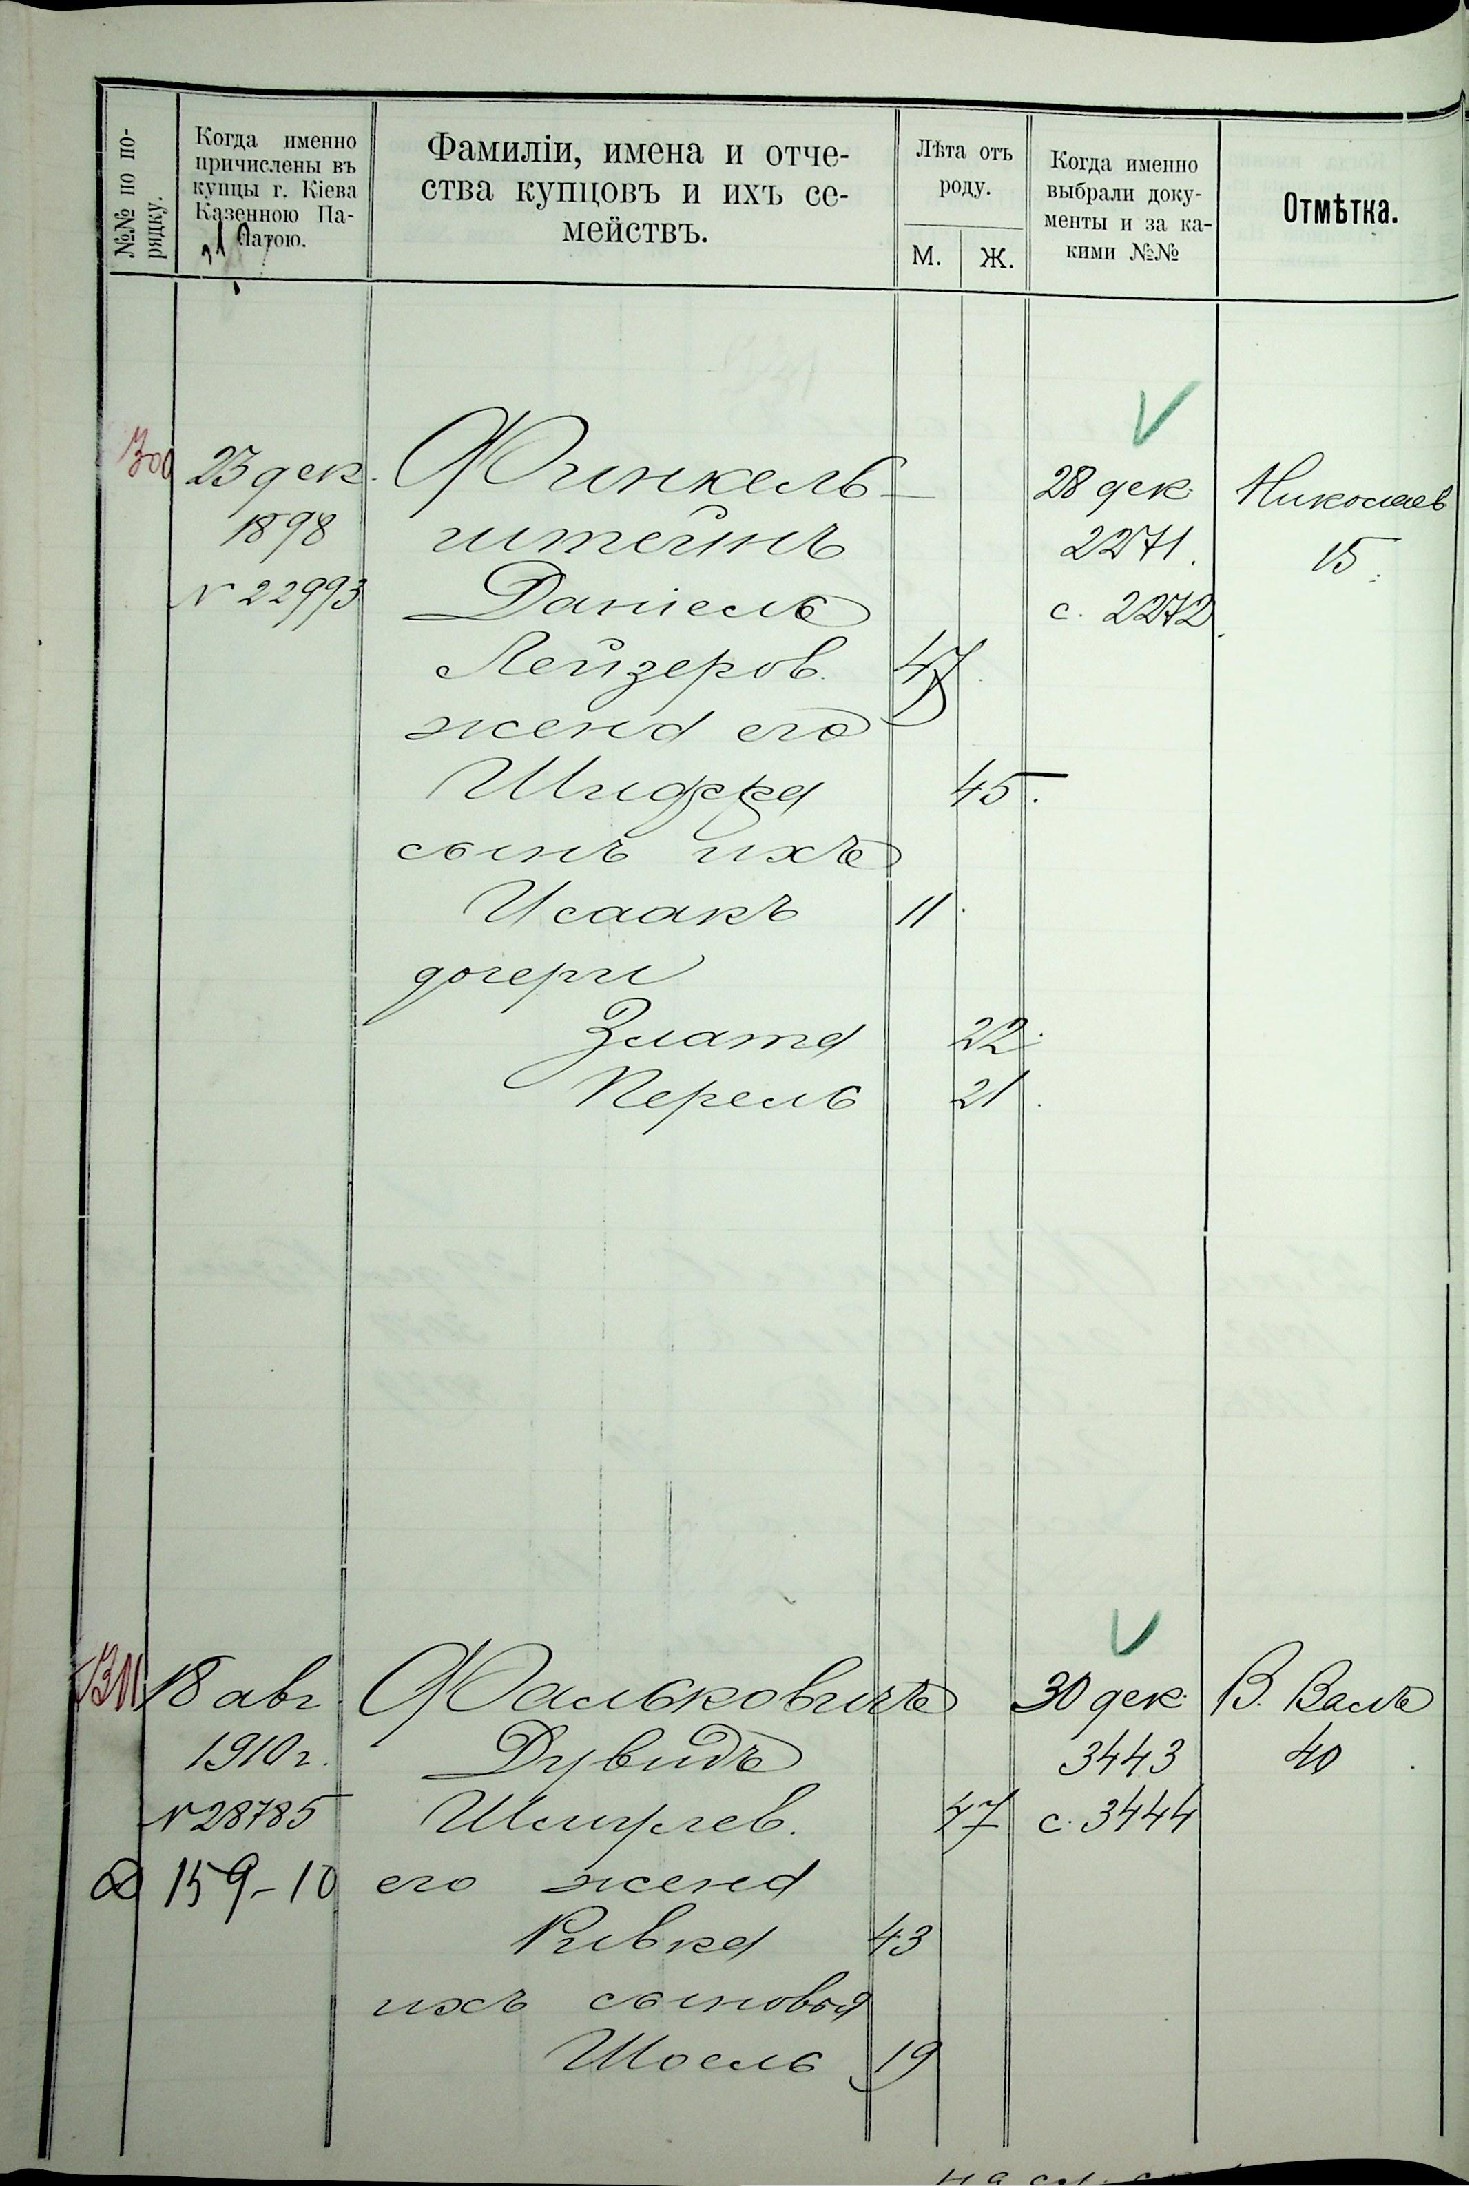 №№ по по-
рядку.
Когда именно
причислены въ
купцы г. Кіева
Казенною Па-
латою.
Фамиліи, имена и отче-
ства купцовъ и ихъ се-
мействъ.
Лѣта отъ
роду.
М. Ж.
Когда именно
выбрали доку-
менты и за ка-
кими №№
Отмѣтка.
300 23 дек. Финкель- 28 дек. Николаев
1898 штейнъ 2271. 15.
№ 22993 Даніель с. 2272.
Лейзеров. 47.
жена его
45.
сынъ ихъ
Исаакъ 11.
дочери
Злата 22.
Перель 21.
18 авг. Фальковичъ 30 дек. В. Валъ
1910 г. Дувидъ 3443 40
№ 28785 Шмулев. 47 с. 3444
159-10 его жена
Ривка 43
ихъ сыновья
Шоель 19